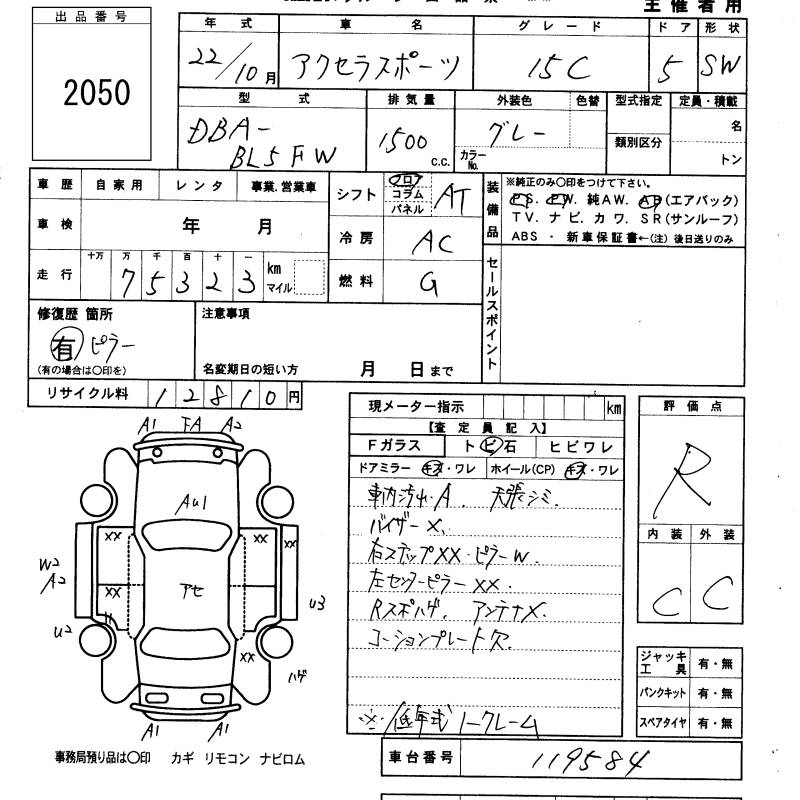 主催者用
出品番号
2050
年式 車名 グレード ドア 形状
22/10月 アクセラスポーツ 15C 5 SW
型式 排気量 外装色 色替 型式指定 定員・積載
DBA-
BL5FW
1500 c.c.
グレー
カラーNo.
類別区分
名
トン
車歴 自家用 レンタ 事業.営業車
車検 年 月
走行 十万 万 千 百 十 一
75323 km
マイル
シフト フロア コラム パネル AT
冷房 AC
燃料 G
装備品
※純正のみ〇印をつけて下さい。
PS. PW. 純AW. AB(エアバック)
TV. ナビ. カワ. SR(サンルーフ)
ABS ・ 新車保証書←(注) 後日送りのみ
セールスポイント
修復歴 箇所
有 ピラー
(有の場合は〇印を)
注意事項
名変期日の短い方 月 日まで
リサイクル料 12810円
現メーター指示 km
【査定員記入】
Fガラス トビ石 ヒビワレ
ドアミラー キズ・ワレ ホイール(CP) キズ・ワレ
車内汚れ・A. 天張シミ.
バイザーX.
右ステップXX・ピラーW.
左センターピラーXX.
Rスポハゲ. アンテナX.
コーションプレート欠.
※・低年式ノークレーム
評価点
R
内装 外装
C C
ジャッキ工具 有・無
パンクキット 有・無
スペアタイヤ 有・無
車台番号 119584
A1 FA A2
AU1
XX XX XX
W2
A2
XX
アセ
U3
U2
XX
ハゲ
A1 A1
事務局預り品は〇印 カギ リモコン ナビロム